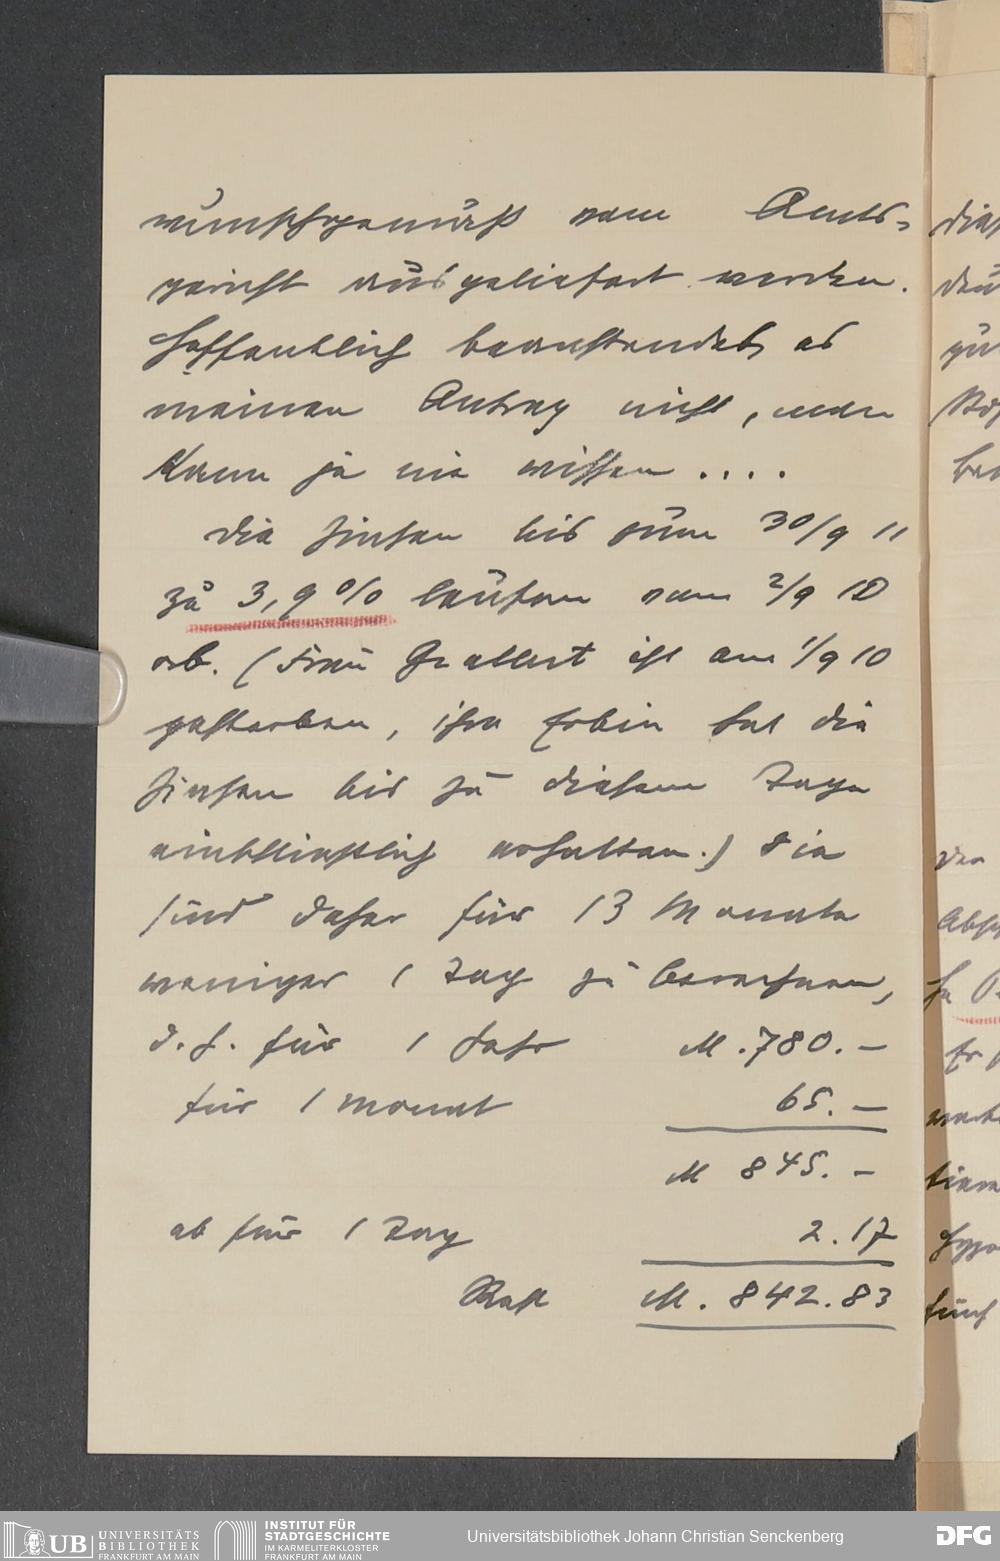 wunschgemäß vom Amts-
gericht ausgeliefert werden.
Hoffentlich beanstandet es
meinen Antrag nicht, man
kann ja nie wissen ....
Die Zinsen bis zum 30/9 11
zu 3,9 % laufen vom 2/9 10
ab. (Frau Grallert ist am 1/9 10
gestorben, ihre Erbin hat die
Zinsen bis zu diesem Tage
einschließlich erhalten.) Sie
sind daher für 13 Monate
weniger 1 Tag zu berechnen,
d.h. für 1 Jahr M. 780.—
für 1 Monat 65.—
M 845.—
ab für 1 Tag 2.17
Rest M. 842.83
UB UNIVERSITÄTS
BIBLIOTHEK
FRANKFURT AM MAIN
INSTITUT FÜR
STADTGESCHICHTE
IM KARMELITERKLOSTER
FRANKFURT AM MAIN
Universitätsbibliothek Johann Christian Senckenberg
DFG